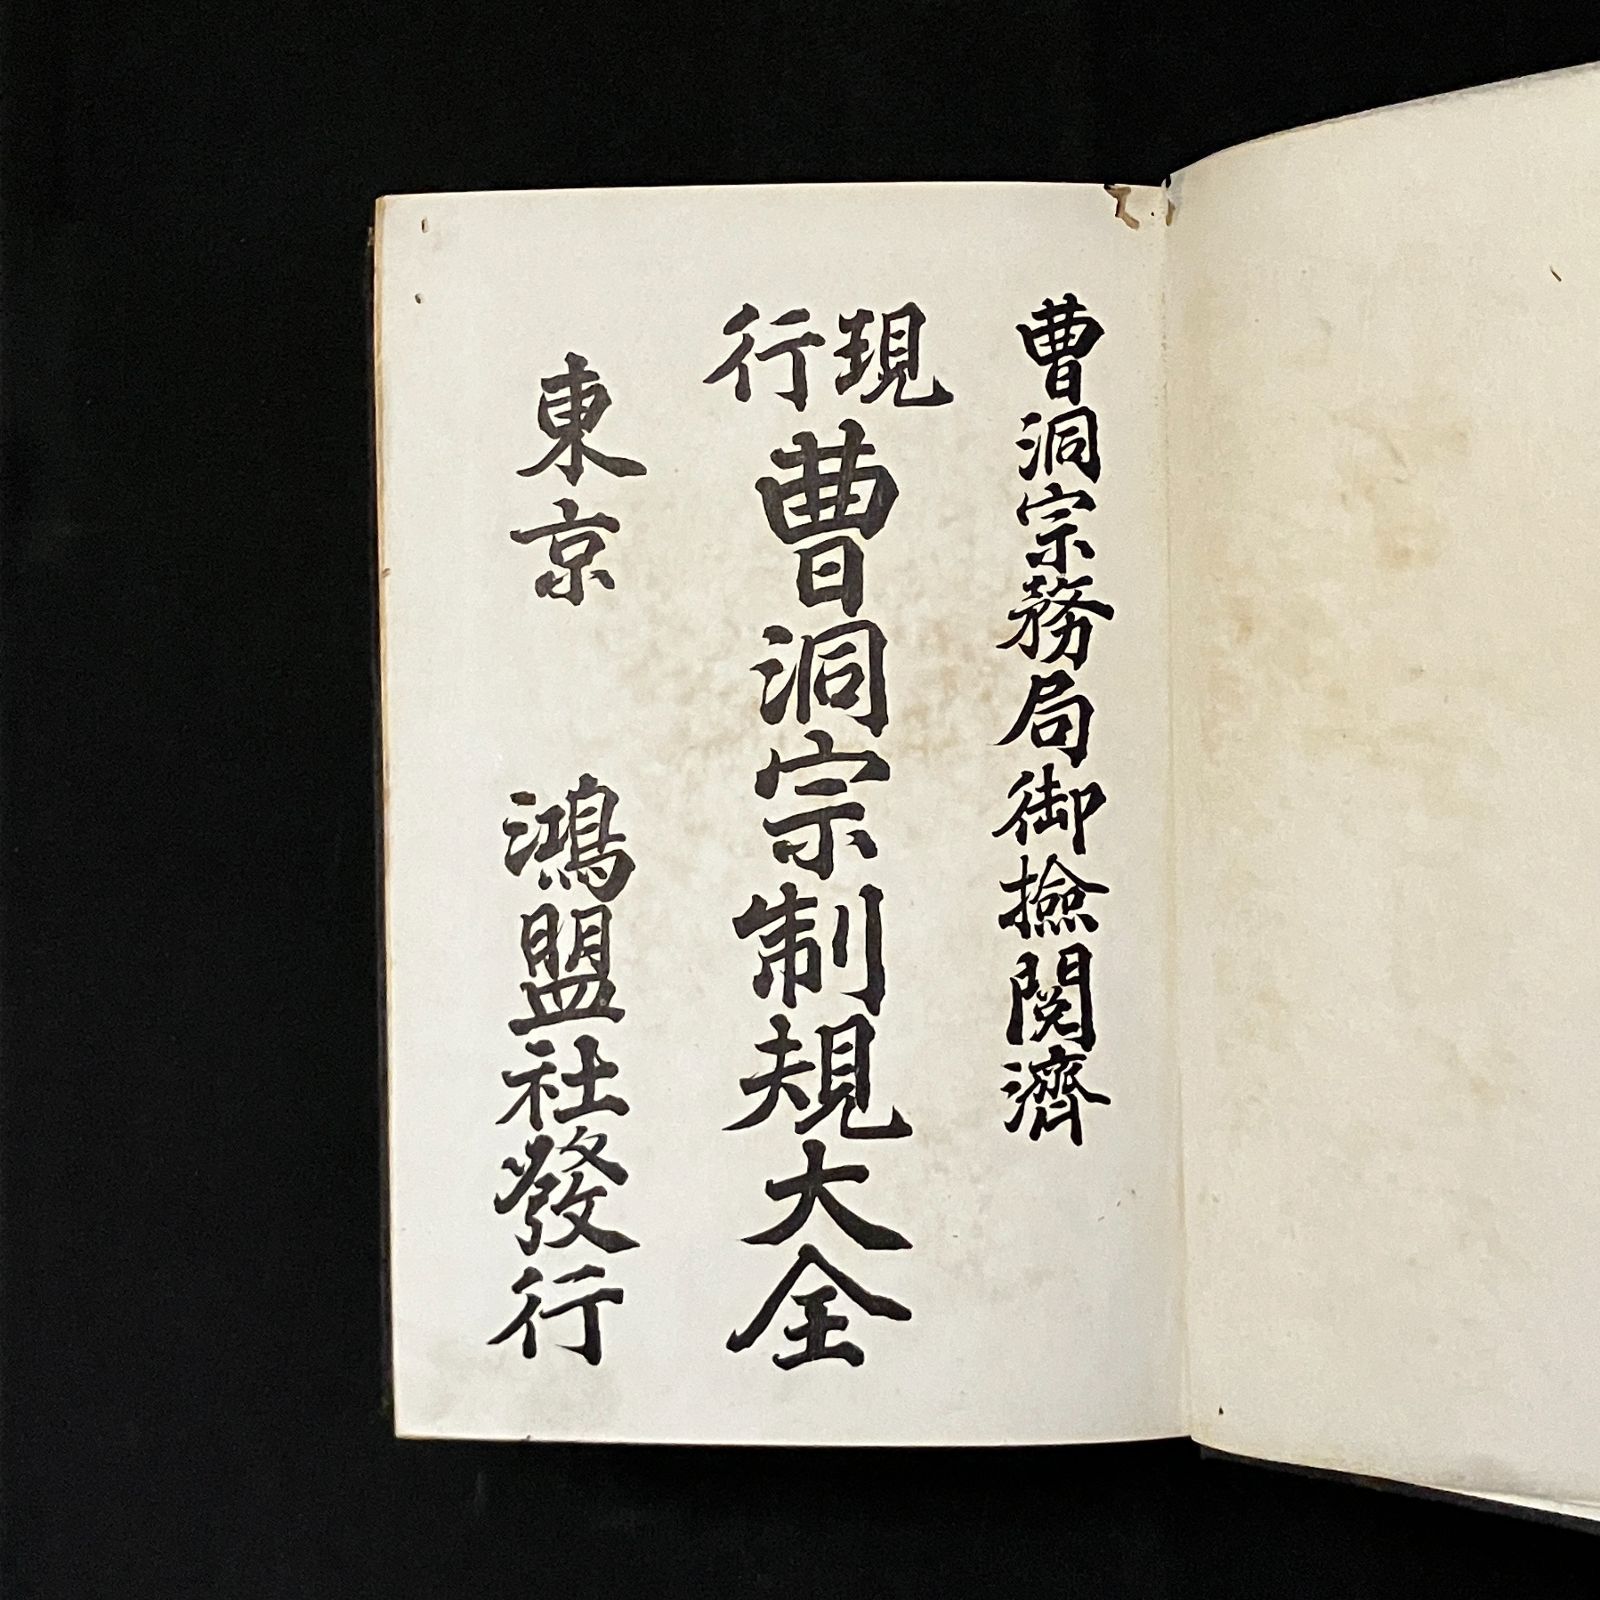 曹洞宗務局御撿閱濟
現行曹洞宗制規大全
東京　鴻盟社發行